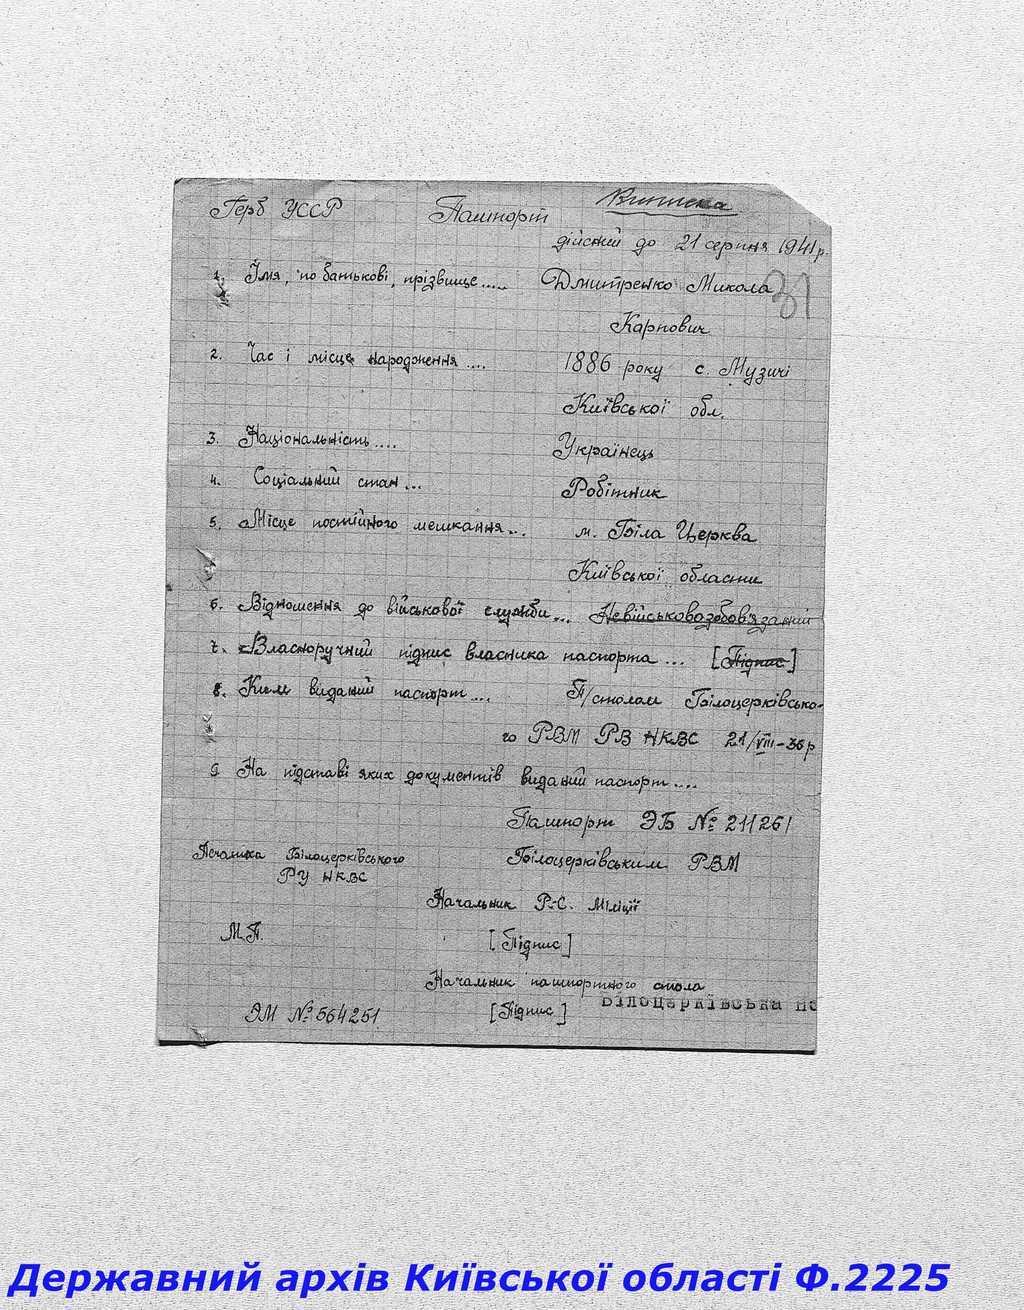 Витяжка
Герб УССР Пашпорт
дійсний до 21 серпня 1941 р.
1. Імя, по батькові, прізвище..... Дмитренко Микола 31
Карпович
2. Час і місце народження.... 1886 року с. Музичі
Київської обл.
3. Національність.... Українець
4. Соціальний стан... Робітник
5. Місце постійного мешкання... м. Біла Церква
Київської области
6. Відношення до військової служби... Невійськовозобов'язаний
7. Власноручний підпис власника паспорта... [Підпис]
8. Ким виданий паспорт... П/столам Білоцерківсько-
го РВМ РВ НКВС 21/VIII-36 р
9 На підставі яких документів виданий паспорт....
Пашпорт ЭБ № 211261
Печатка Білоцерківського Білоцерківським РВМ
РУ НКВС
Начальник Р.-С. Міліції
М.П. [Підпис]
Начальник пашпортного стола
ЭМ № 564251 [Підпис] Білоцерківська но
Державний архів Київської області Ф.2225